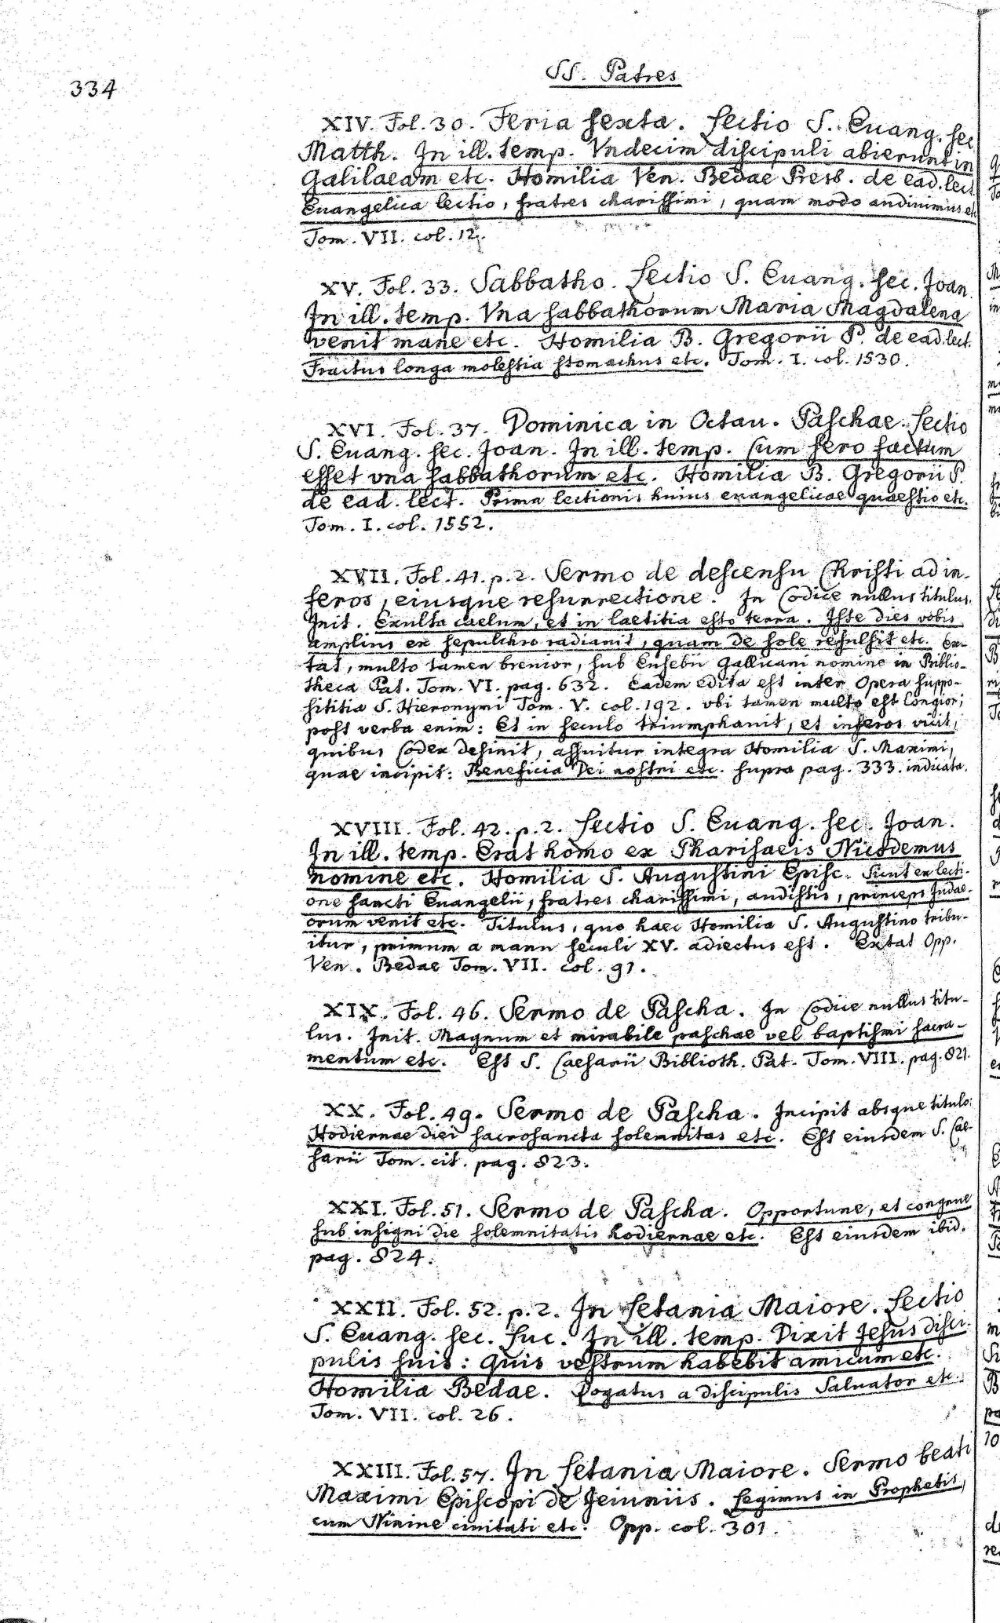 334
SS. Patres
XIV. Fol. 30. Feria sexta. Lectio S. Euang. sec.
Matth. In ill. temp. Vndecim discipuli abierunt in
Galilaeam etc. Homilia Ven. Bedae Presb. de ead. lect.
Euangelica lectio, fratres charissimi, quam modo audiuimus etc
Tom. VII. col. 12.
XV. Fol. 33. Sabbatho. Lectio S. Euang. sec. Joan.
In ill. temp. Vna sabbathorum Maria Magdalena
venit mane etc. Homilia B. Gregorii P. de ead. lect.
Fractus longa molestia stomachus etc. Tom. I. col. 1530.
XVI. Fol. 37. Dominica in Octau. Paschae. Lectio
S. Euang. sec. Joan. In ill. temp. Cum sero factum
esset vna sabbathorum etc. Homilia B. Gregorii P.
de ead. lect. Prima lectionis huius euangelicae quaestio etc.
Tom. I. col. 1552.
XVII. Fol. 41. p. 2. Sermo de descensu Christi ad in-
feros, eiusque resurrectione. In Codice nullus titulus.
Init. Exulta caelum, et in laetitia esto terra. Iste dies vobis
amplius ex sepulchro radiauit, quam de sole refulsit etc. Ex-
tat, multo tamen breuior, sub Eusebii Gallicani nomine in Biblio-
theca Pat. Tom. VI. pag. 632. Eadem edita est inter Opera suppo-
sititia S. Hieronymi Tom. V. col. 192. vbi tamen multo est longior;
post verba enim: Et in seculo triumphauit, et inferos vicit,
quibus Codex desinit, assuitur integra Homilia S. Maximi,
quae incipit: Beneficia Dei nostri etc. supra pag. 333. indicata.
XVIII. Fol. 42. p. 2. Lectio S. Euang. sec. Joan.
In ill. temp. Erat homo ex Pharisaeis Nicodemus
nomine etc. Homilia S. Augustini Episc. Sicut ex lecti-
one sancti Euangelii, fratres charissimi, audistis, princeps Judae-
orum venit etc. Titulus, quo haec Homilia S. Augustino tribu-
itur, primum a manu seculi XV. adiectus est. Extat Opp.
Ven. Bedae Tom. VII. col. 91.
XIX. Fol. 46. Sermo de Pascha. In Codice nullus titu-
lus. Init. Magnum et mirabile paschae vel baptismi sacra-
mentum etc. Est S. Caesarii Biblioth. Pat. Tom. VIII. pag. 821.
XX. Fol. 49. Sermo de Pascha. Incipit absque titulo:
Hodiernae diei sacrosancta solemnitas etc. Est eiusdem S. Cae-
sarii Tom. cit. pag. 823.
XXI. Fol. 51. Sermo de Pascha. Opportune, et congrue
sub insigni die solemnitatis hodiernae etc. Est eiusdem ibid.
pag. 824.
XXII. Fol. 52. p. 2. In Letania Maiore. Lectio
S. Euang. sec. Luc. In ill. temp. Dixit Jesus disci-
pulis suis: Quis vestrum habebit amicum etc.
Homilia Bedae. Rogatus a discipulis Saluator etc.
Tom. VII. col. 26.
XXIII. Fol. 57. In Letania Maiore. Sermo beati
Maximi Episcopi de Jeiuniis. Legimus in Prophetis,
cum Niniue ciuitati etc. Opp. col. 301.